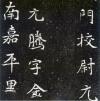 門校尉元
尤騰字金
南嘉平里